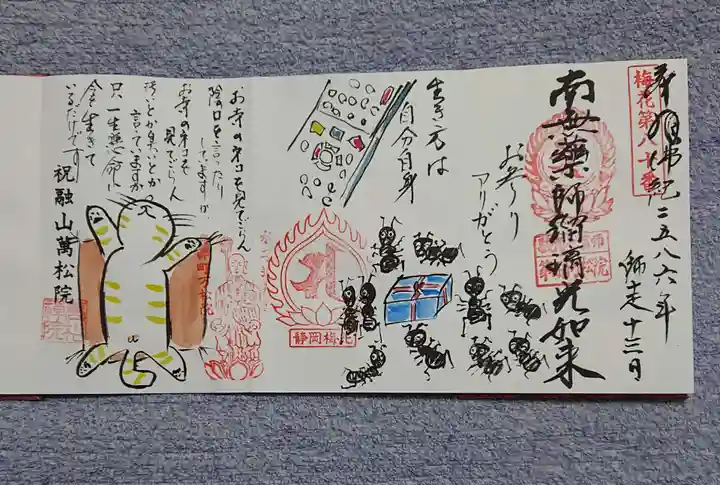 奉拝 佛紀二五八六年
師走十三日
梅花第八十番
南無薬師瑠璃光如来
お参り
アリがとう
生き方は
自分自身
静岡梅花
お寺のネコを見てごらん
陰口を言ったり
してますか
お寺のネコを
見てごらん
言ってますか
只一生懸命に
今を生きて
いるだけです
祝融山萬松院